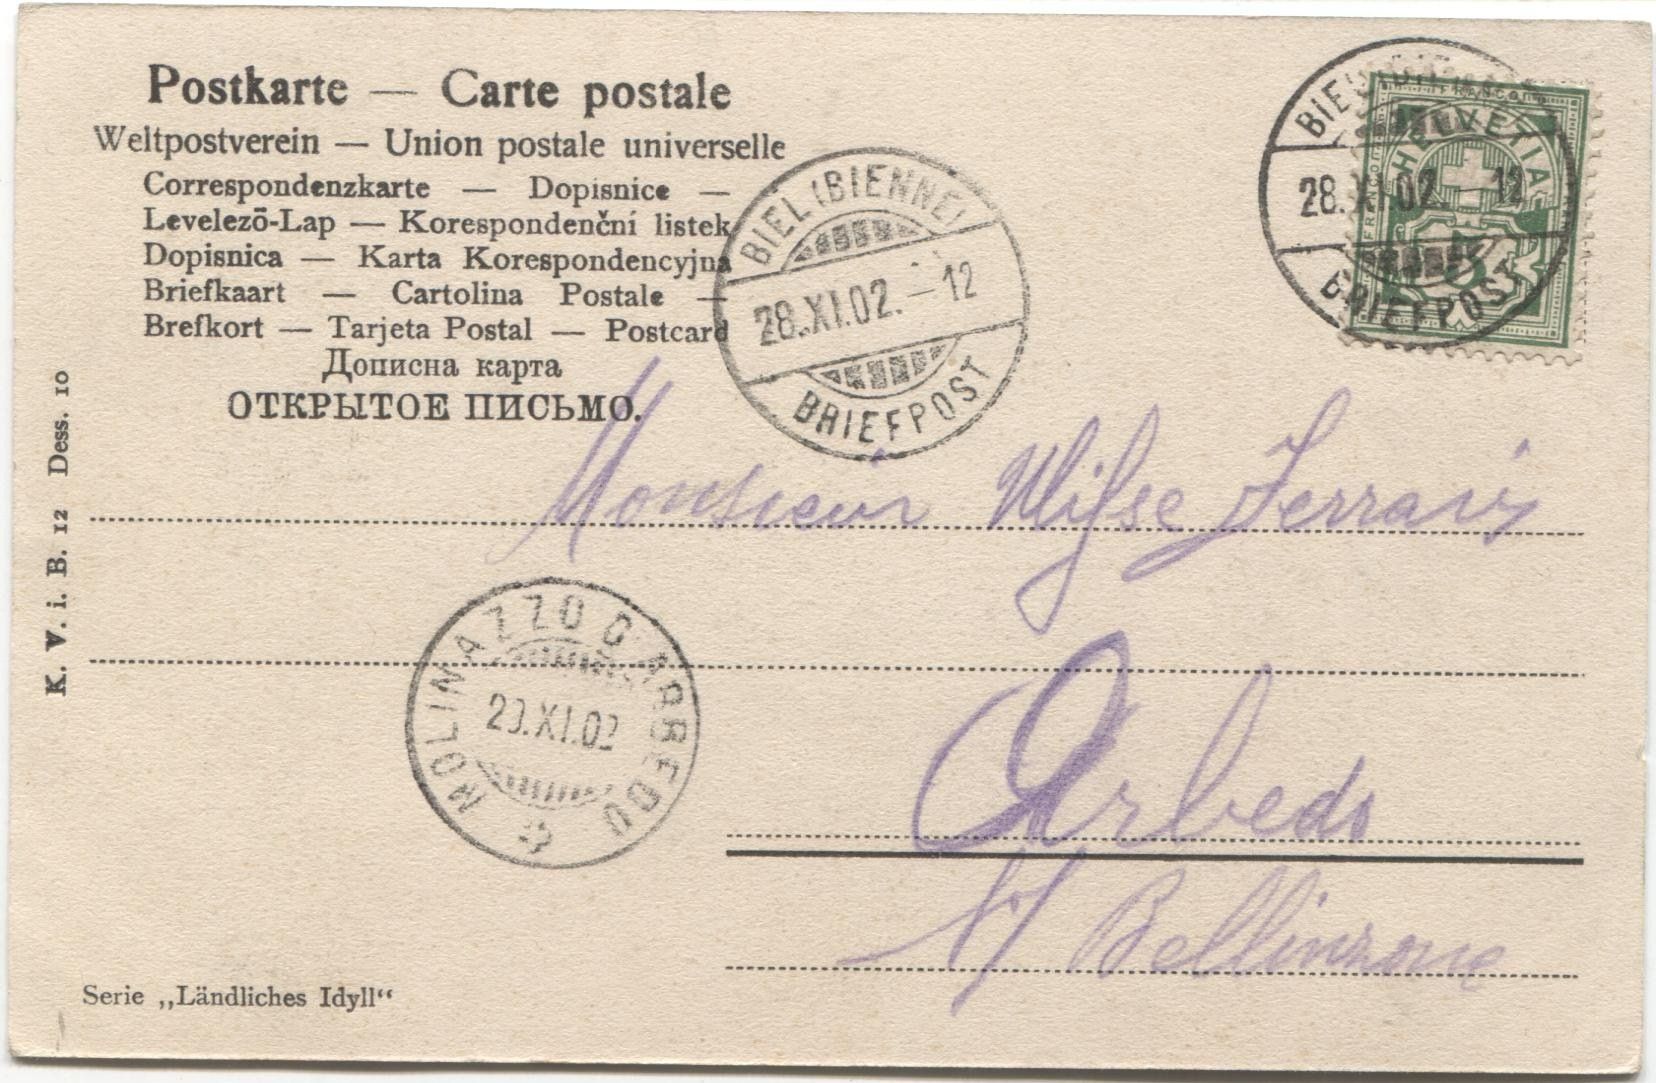 Postkarte — Carte postale
Weltpostverein — Union postale universelle
Correspondenzkarte — Dopisnice —
Levelezō-Lap — Korespondenční listek
Dopisnica — Karta Korespondencyjna
Briefkaart — Cartolina Postale —
Brefkort — Tarjeta Postal — Postcard
Дописна карта
ОТКРЫТОЕ ПИСЬМО.
BIEL (BIENNE)
28.XI.02.–12
BRIEFPOST
BIEL
28.XI.02.–12
BRIEFPOST
FRANCO
HELVETIA
5
K. V. i. B. 12 Dess. 10
Monsieur
MOLINAZZO D'ARBEDO
XI.02
Arbedo
s/ Bellinzona
Serie „Ländliches Idyll“